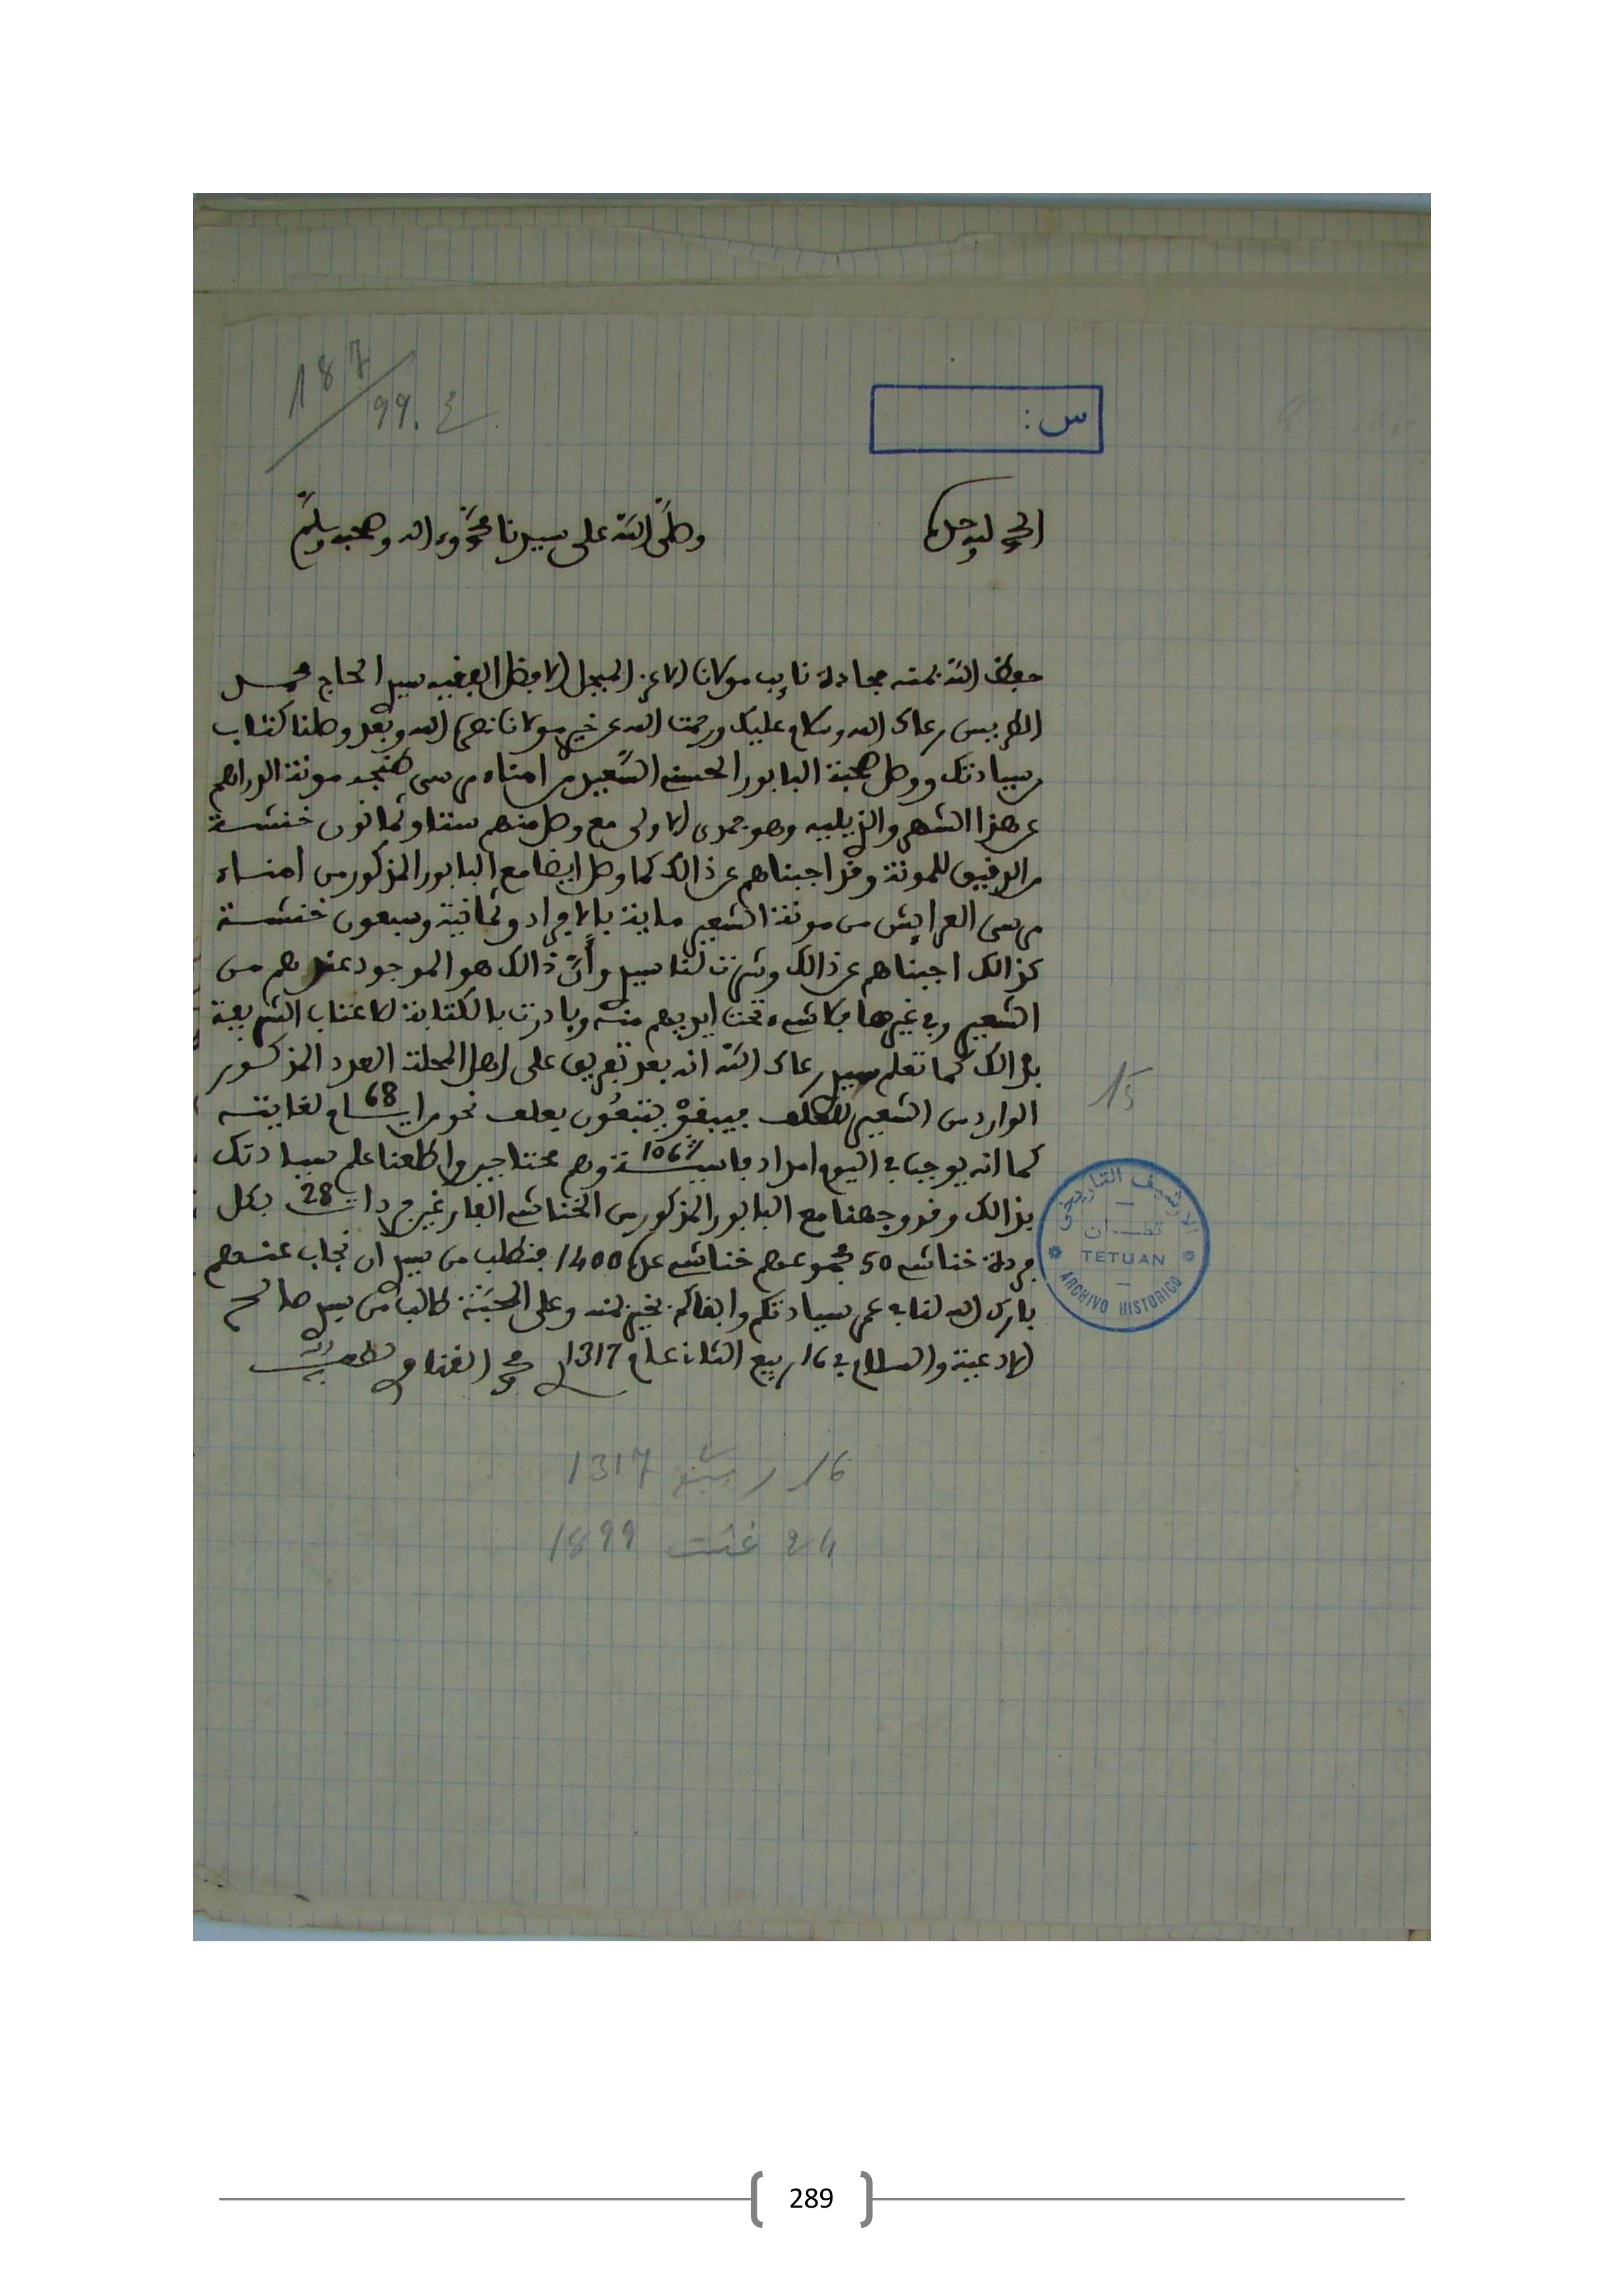 187
99. غ
س :
الحمد لله وحده
وصلى الله على سيدنا محمد وءاله وصحبه وسلم
حفظ الله بمنه مجادة نايب مولانا الاعز المبجل الافضل الفقيه سيد الحاج محمد
الطريس رعاك الله وسلام عليك ورحمت الله عن خير مولانا نصره الله وبعد وصلنا كتاب
من سيادتك ووصل صحبة البابور الحسني السعيد من امناء مرسى طنجة مونة الدراهم
عن هذا الشهر والذي يليه وهو جمدى الاولى مع وصل منهم ستتا وثمانون خنشة
من الدقيق للمونة وقد اجبناهم عن ذالك كما وصل ايضا مع البابور المذكور من امناء
مرسى العرايش من مونة الشعير ماية بالافراد وثمانية وسبعون خنشة
كذالك اجبناهم عن ذالك وشرت لنا سيد وأن ذالك هو الموجود عندهم من
الشعير وفي غيرها فلا شيء تحت ايديهم منه وبادرت بالكتابة للاعتاب الشريفة
بذالك كما تعلم سيد رعاك الله انه بعد تفريق على اهل المحلة العدد المذكور
الوارد من الشعير للعلف فيبقوا يتبعون بعلف نحو من ايام 68 لغايته
كما انه يوجب في اليوم امداد قايسة 1067 وهم محتاجين واطلعنا علم سيادتك
بذالك وقد وجهنا مع البابور المذكور من الخناشي الفارغين فردات 28 بكل
فردة خناشي 50 مجموعهم خناشي عدد 1400 فنطلب من سيد ان نجاب عنهم
بارك الله لنا في عمر سيادتكم وابقاكم بخير بمنه وعلى المحبة طالبا من سيد صالح
الادعية والسلام في 16 ربيع الثان عام 1317 محمد لطف الله به
16 ربيع 1317
24 غشت 1899
15
الارشيف التاريخي
تطوان
TETUAN
ARCHIVO HISTORICO
289